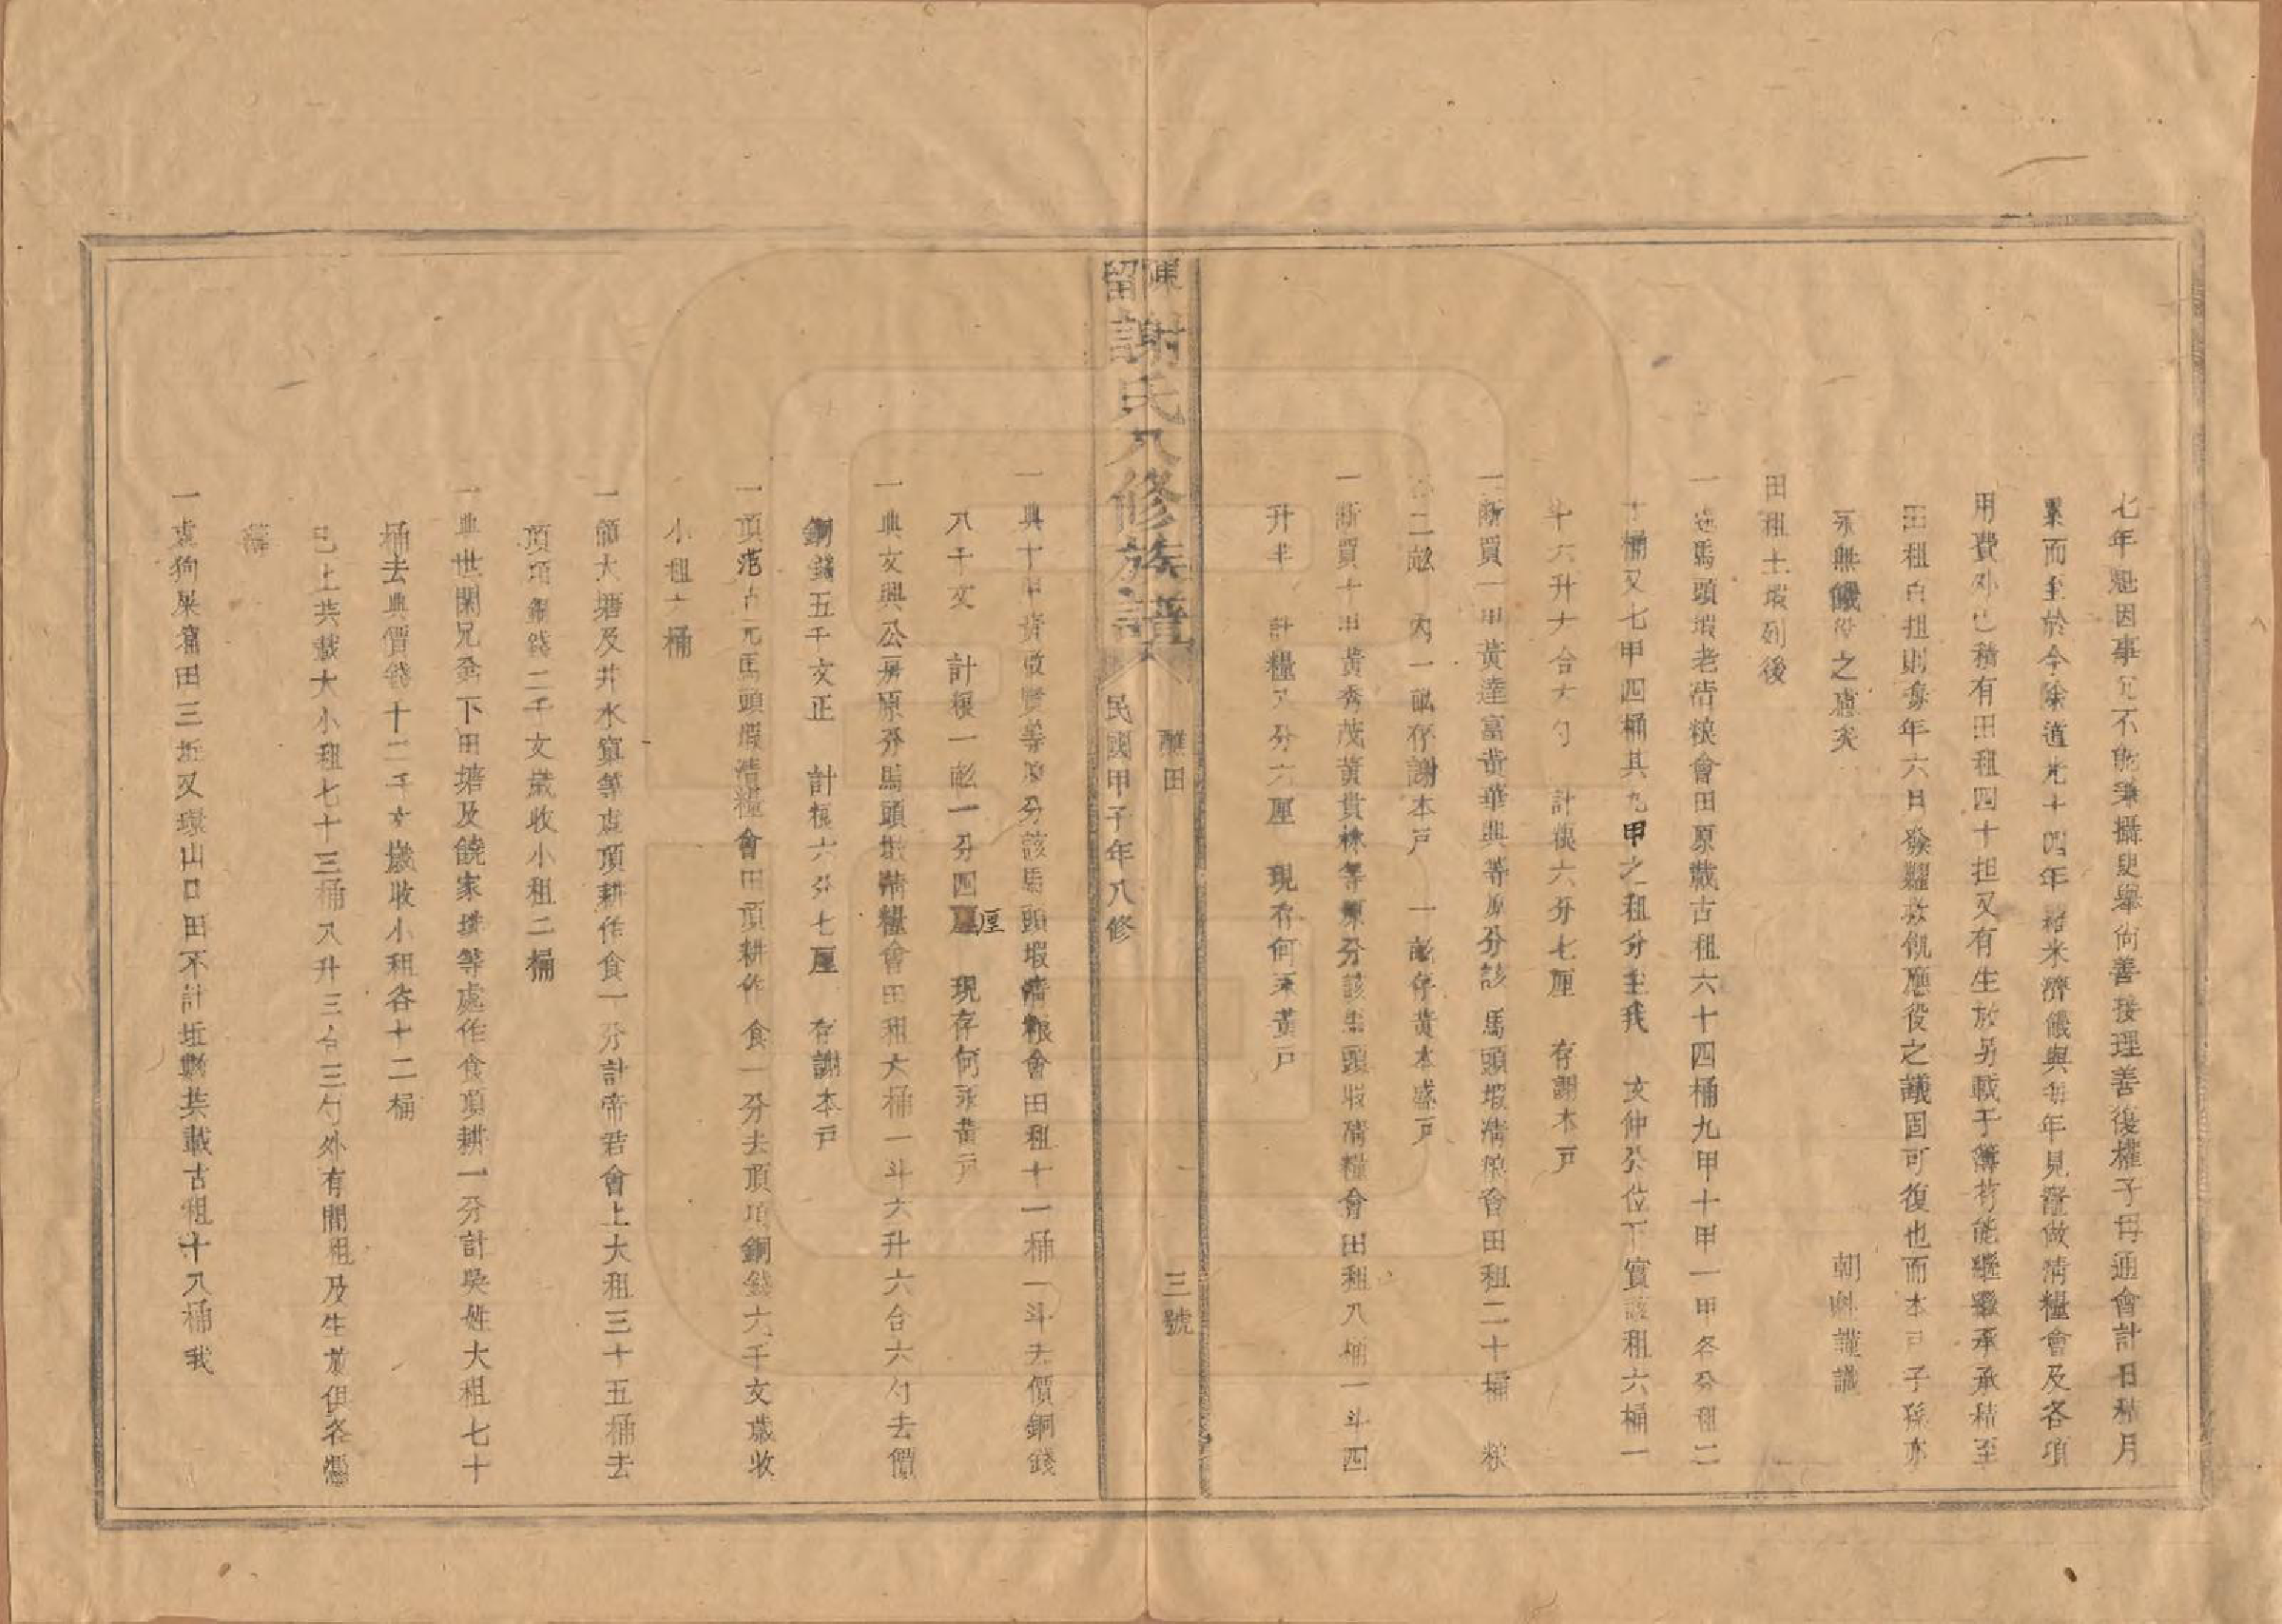 七年魁因事冗不能兼攝更舉尚善接理善復權子母通會計日積月
累而至於今除道光十四年耤米濟饑與每年見産做清糧會及各項
用費外已積有田租四十担又有生放另載于簿若能繼繼承承積至
田租百担則每年六日發糶救飢應役之議固可復也而本可子孫亦
永無饑饉之慮矣　朝斌謹議
田租土塅列後
一 馬頭塅老清粮會田原載古租六十四桶九甲十甲一甲各分租二
十桶又七甲四桶其九甲之租分至我　文仲公位下實該租六桶一
斗六升六合六勺　計粮六分七厘　存謝本戸
一斷買一甲黃達富黃華典等原分該馬頭塅清粮會田租二十桶　粮
二畝　內一畝存謝本戸　一畝存黃本盛戸
一斷買十甲黃秀茂黃貴林等原分該馬頭塅清糧會田租八桶一斗四
升半　計糧八分六厘　現存何永黃戸
陳留謝氏八修族譜　醮田　三號　民國甲子年八修
一典十甲黃 賢等原分該馬頭塅清粮會田租十一桶一斗去價銅錢
八千文　計粮一畝一分四厘厘　現存何永黃戸
一典文興公房原分馬頭塅清糧會田租大桶一斗六升六合六勺去價
銅錢五千文正　計粮六分七厘　存謝本戸
一頂 古元馬頭塅清糧會田頂耕作食一分去頂項銅錢六千文歲收
小租六桶
一頂大塘及井水窠等處頂耕作食一分計帝君會上大租三十五桶去
頂項銅錢二千文歲收小租二桶
一典世開兄弟下田塘及饒家垻等處作食頂耕一分計吳姓大租七十
桶去典價錢十二千文歲收小租各十二桶
已上共載大小租七十三桶八升三合三勺外有閒租及生放俱各憑
簿
一處狗屎窩田三坵又璟山口田不計坵數共載古租十八桶我